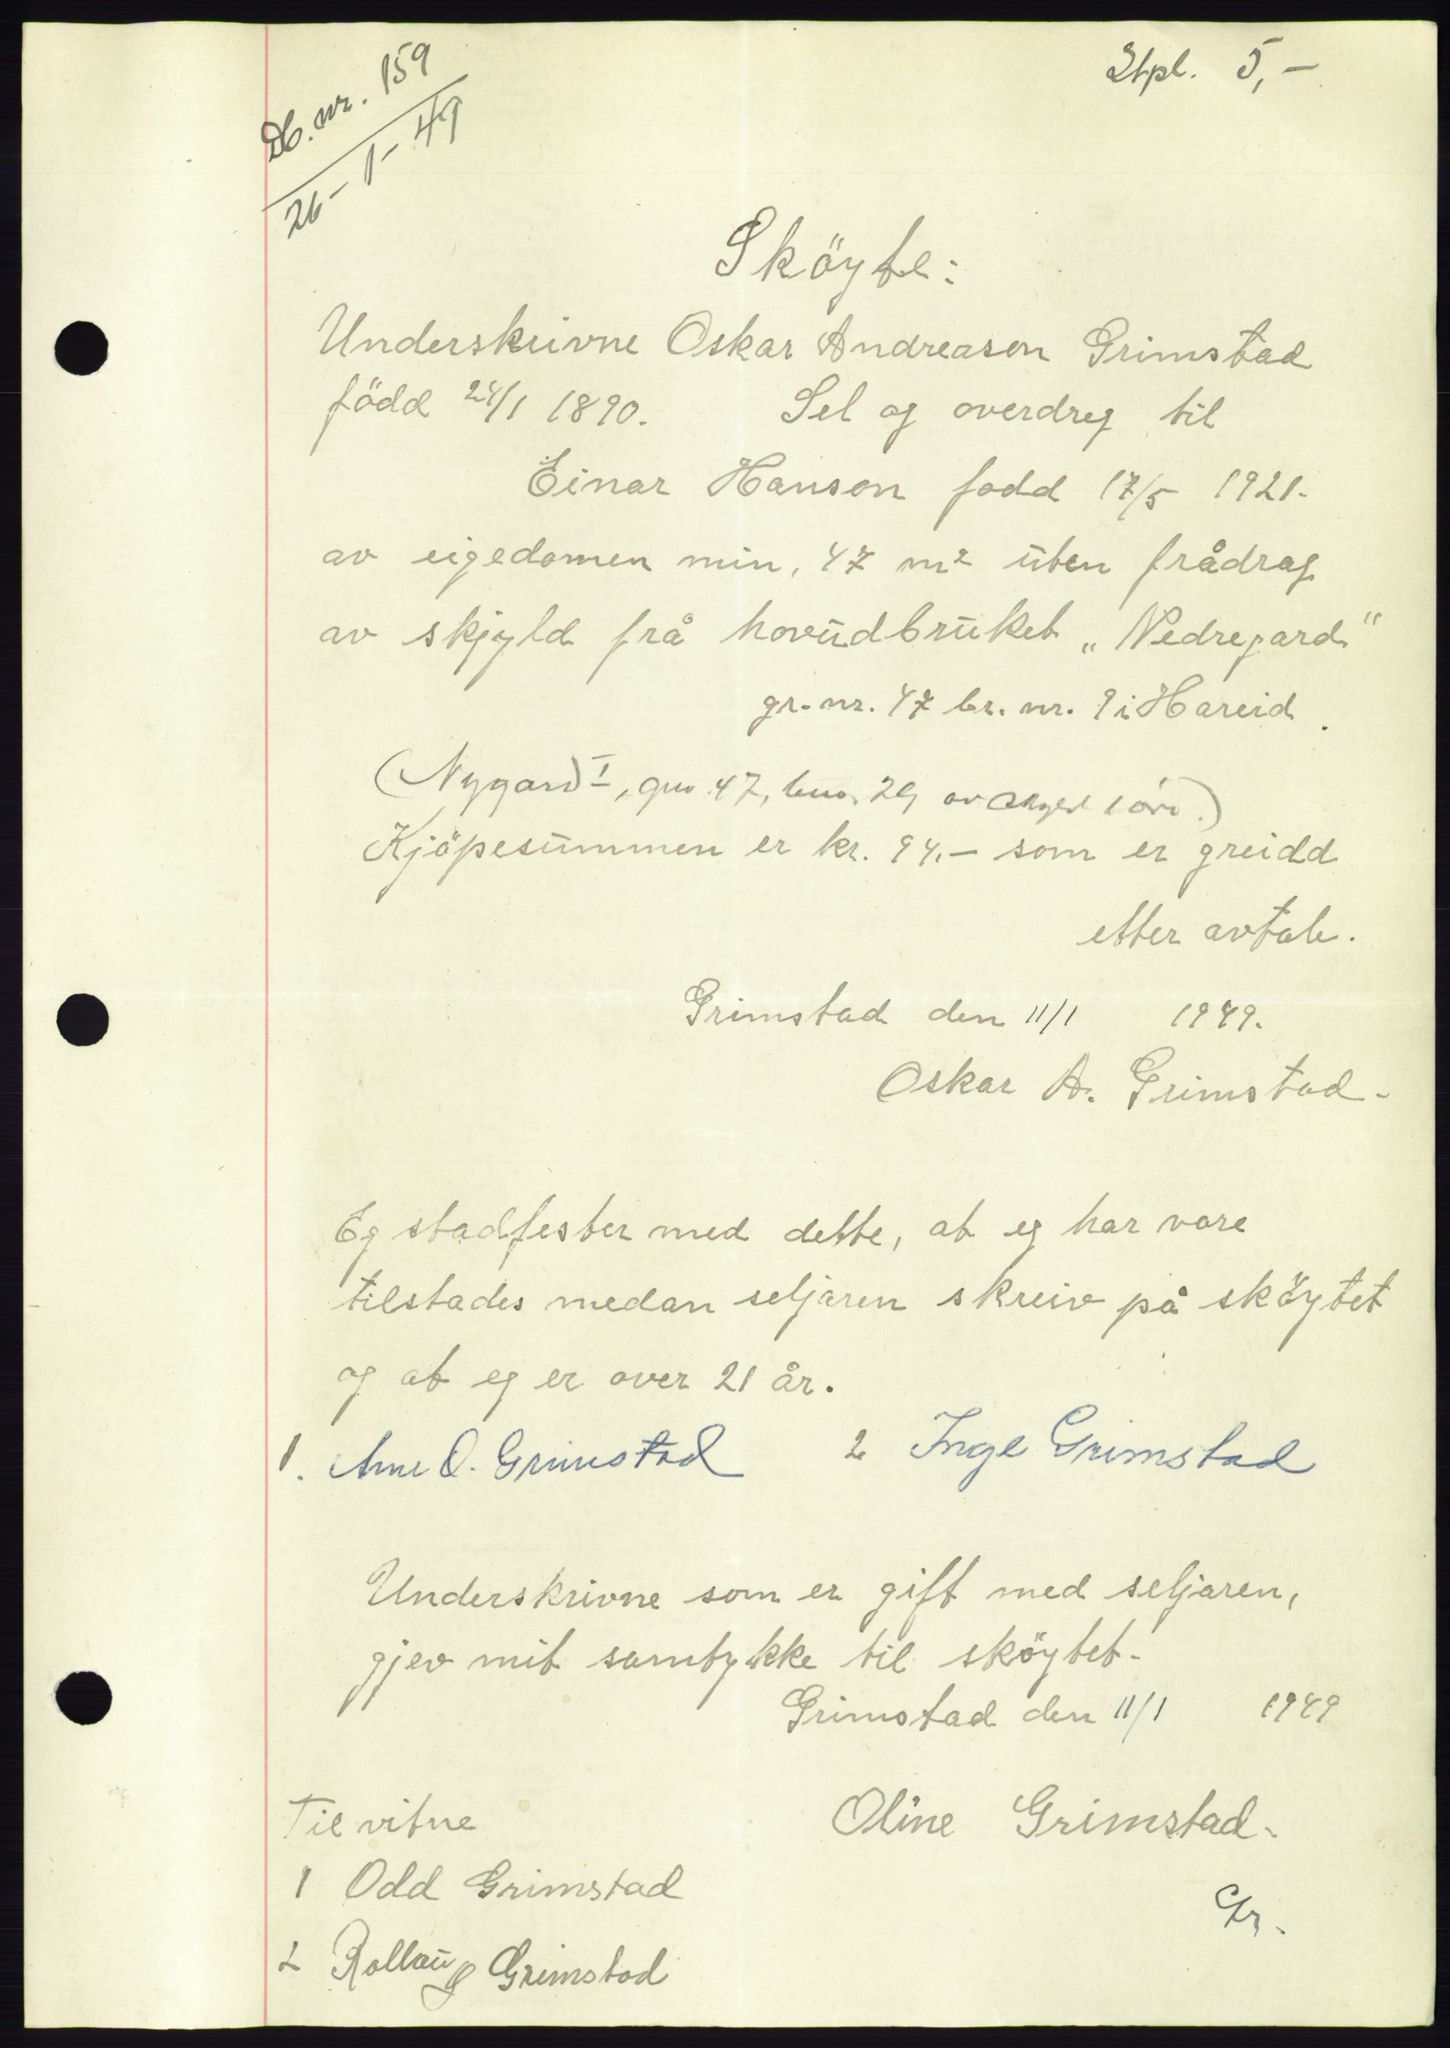 Db. nr. 159
26-1-49
Stpl. 5,-
Sköyte:
Underskrivne Oskar Andreason Grimstad
född 24/1 1890. Sel og overdreg til
Einar Hanson fodd 17/5 1921.
av eigedomen min, 47 m² uten frådrag
av skjyld frå hovudbruket „Nedregard"
gr. nr. 47 br. nr. 9 i Hareid.
(Nygard I, gnr. 47, bnr. 29 av skyld 1 øre.)
Kjöpesummen er kr. 94.- som er greidd
etter avtale.
Grimstad den 11/1 1949.
Oskar A. Grimstad.
Eg stadfester med dette, at eg har vore
tilstades medan seljaren skreiv på sköytet
og at eg er over 21 år.
1. Arne O. Grimstad 2 Inge Grimstad
Underskrivne som er gift med seljaren,
gjev mit samtykke til sköytet.
Grimstad den 11/1 1949
Til vitne Oline Grimstad.
1 Odd Grimstad
2 Rollaug Grimstad